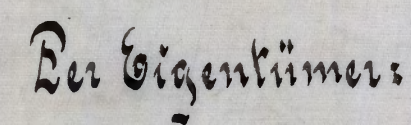 Der Eigentümer: